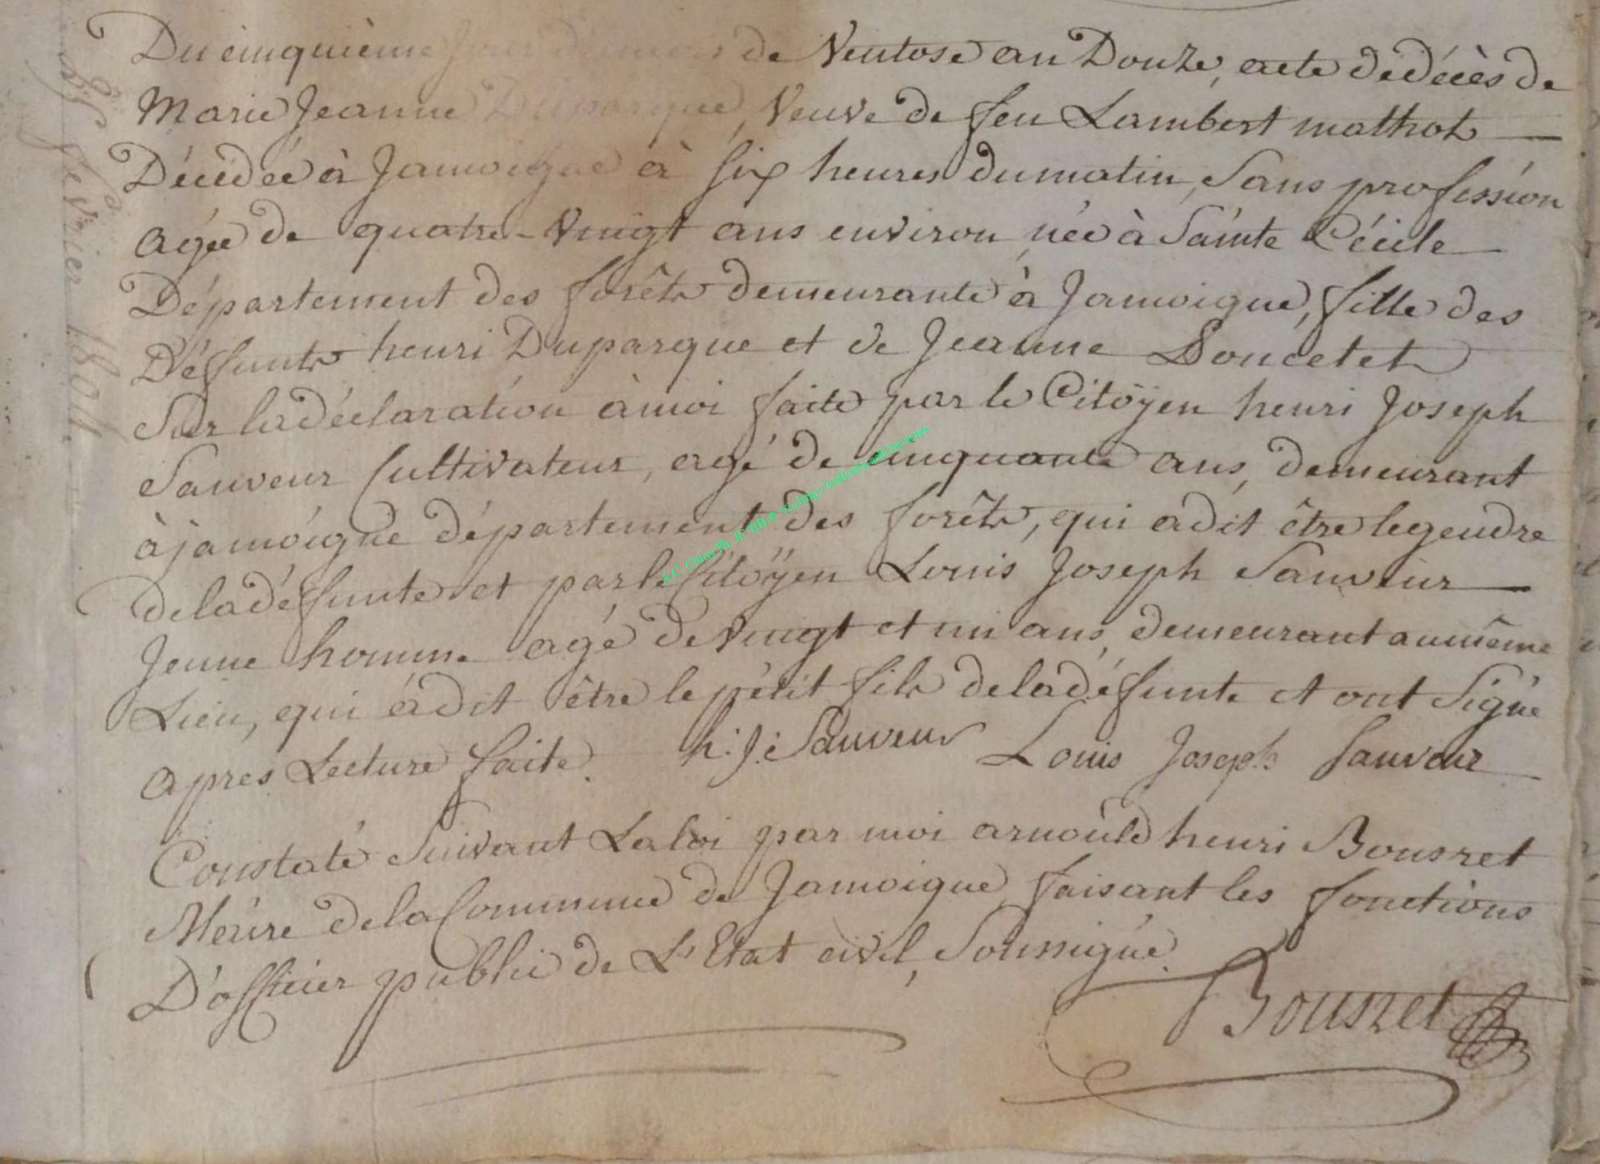 Du cinquième jour du mois de Ventose an Douze, acte de décès de
Marie Jeanne Duparque, Veuve de feu Lambert mathot
Décédée à Jamoigne à six heures du matin, Sans profession
agée de quatre-Vingt ans environ, née à Sainte Cécile
Département des forêts demeurante à Jamoigne, fille des
Défunts henri Duparque et de Jeanne Doncetet
Sur la déclaration à moi faite par le Citoÿen henri Joseph
Sauveur Cultivateur, agé de cinquante ans, demeurant
à jamoigne département des forêts, qui a dit être le gendre
de la défunte et par le Citoÿen Louis Joseph Sauveur
Jeune homme agé de Vingt et un ans, demeurant au même
Lieu, qui a dit être le pétit fils de la défunte et ont Signé
apres Lecture faite. h: J: Sauveur Louis Joseph Sauveur
Constaté Suivant La loi par moi arnould henri Bousret
Meire de la Commune de Jamoigne faisant les fonctions
D'officier public de L'Etat civil, Soussigné.
Bousret
février 1804